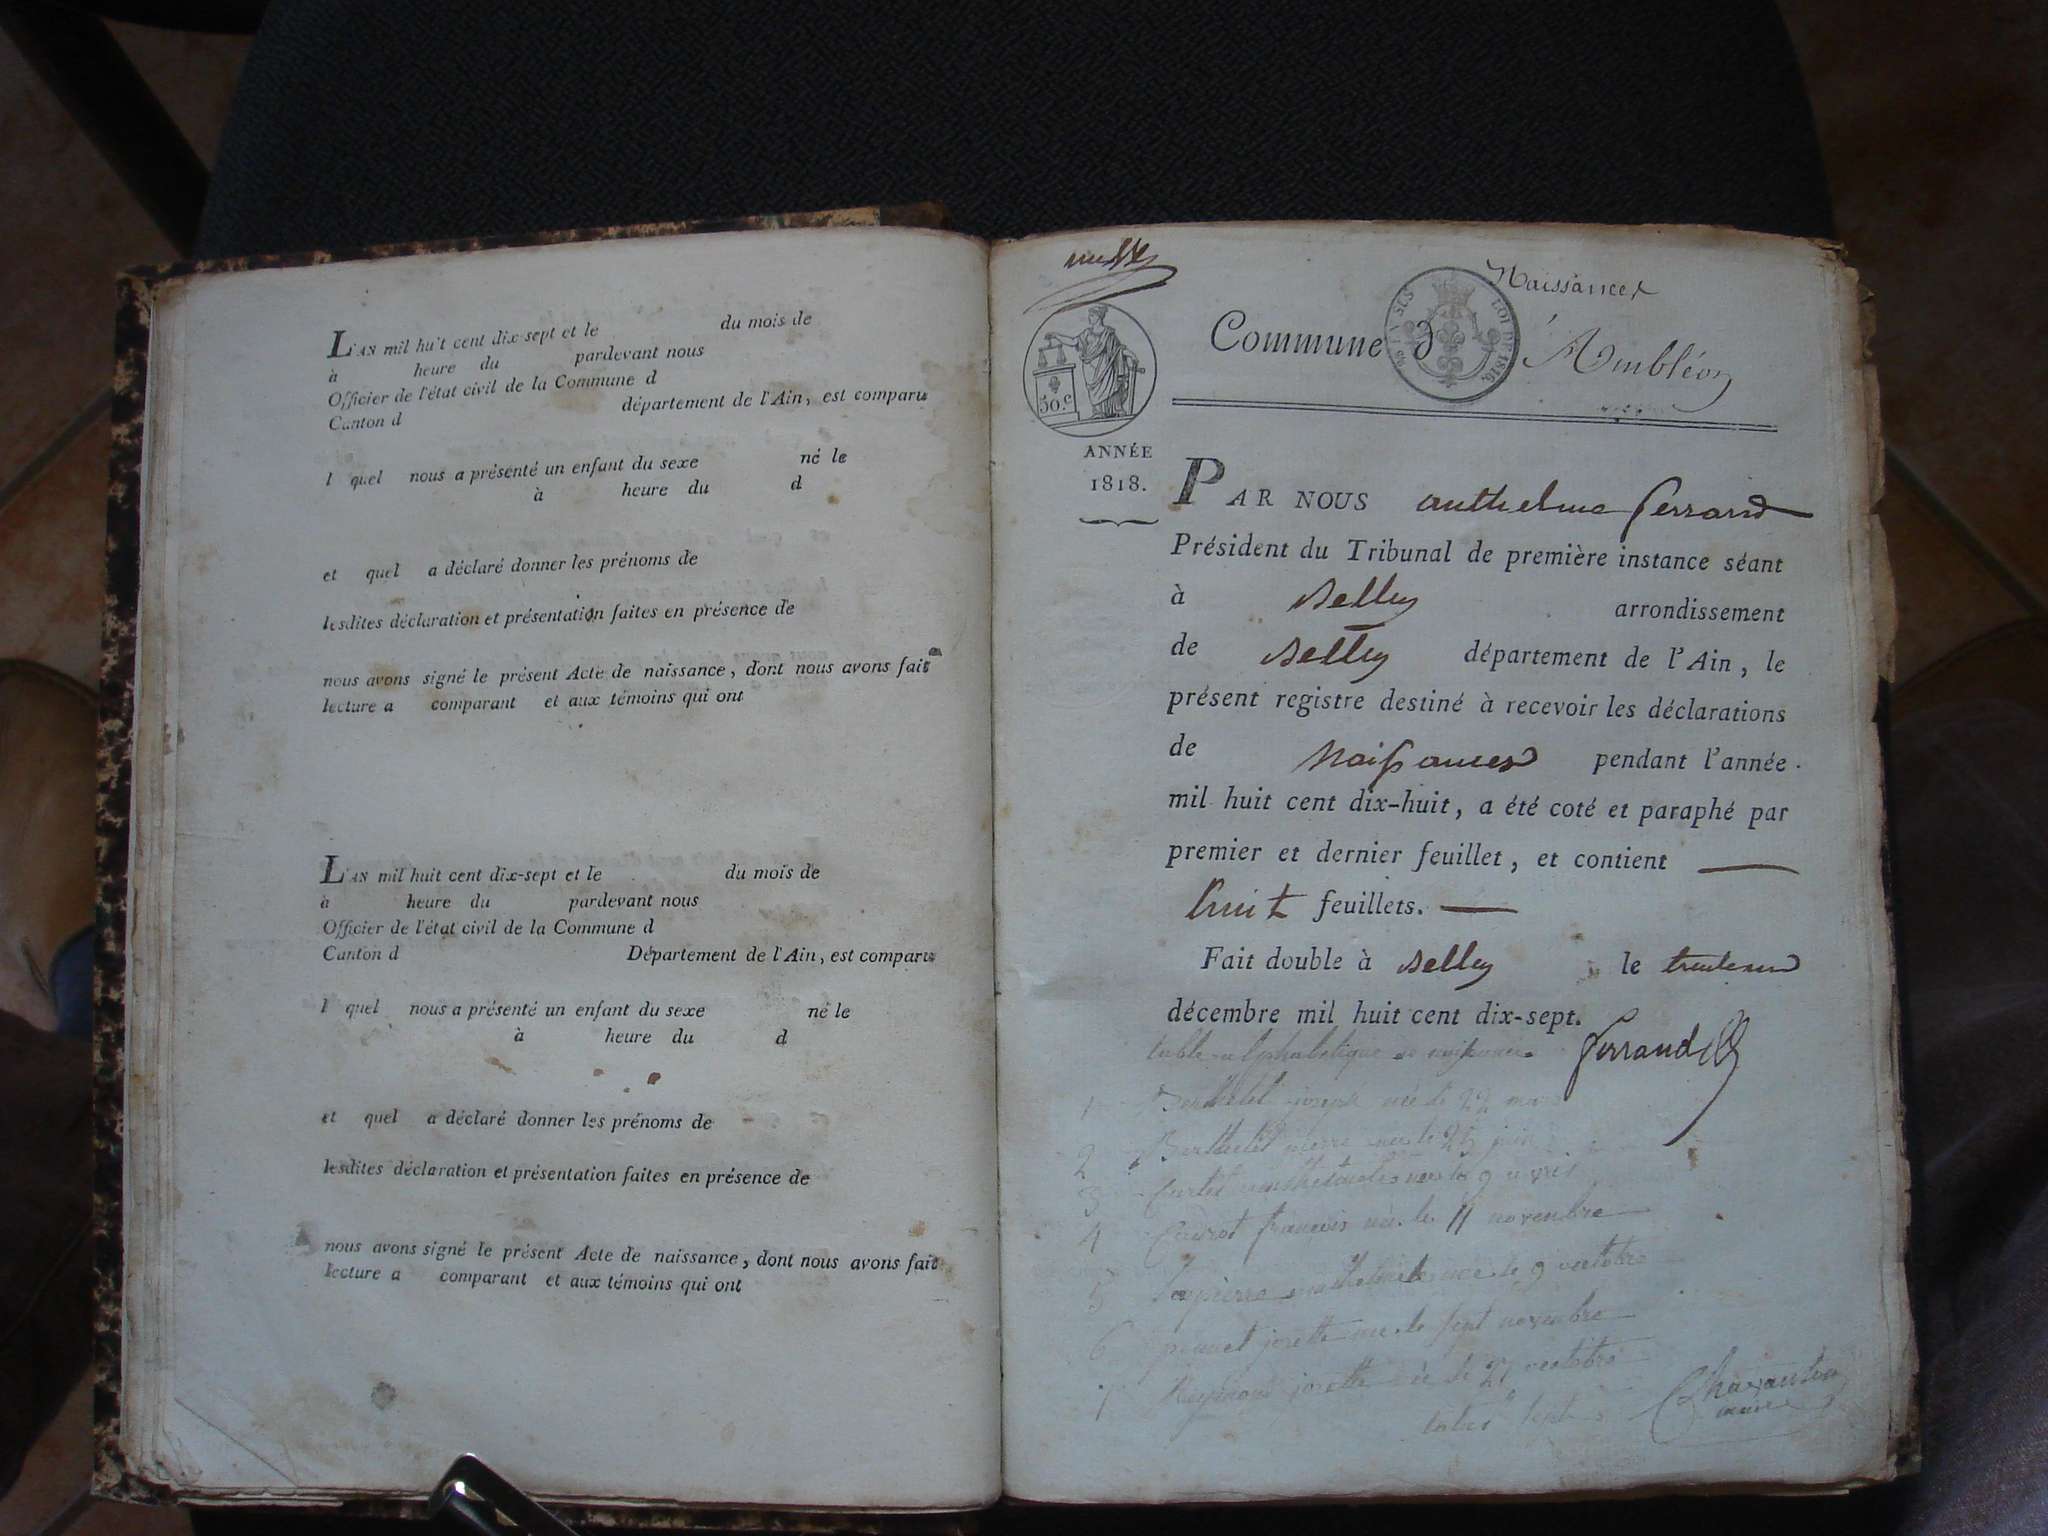 L'AN mil huit cent dix-sept et le du mois de
à heure du pardevant nous
Officier de l'état civil de la Commune d
Canton d département de l'Ain, est comparu
l quel nous a présenté un enfant du sexe né le
à heure du d
et quel a déclaré donner les prénoms de
lesdites déclaration et présentation faites en présence de
nous avons signé le présent Acte de naissance, dont nous avons fait
lecture a comparant et aux témoins qui ont
L'AN mil huit cent dix-sept et le du mois de
à heure du pardevant nous
Officier de l'état civil de la Commune d
Canton d Département de l'Ain, est comparu
l quel nous a présenté un enfant du sexe né le
à heure du d
et quel a déclaré donner les prénoms de
lesdites déclaration et présentation faites en présence de
nous avons signé le présent Acte de naissance, dont nous avons fait
lecture a comparant et aux témoins qui ont
Naissances
50.c
LOI DE 1816.
Commune d'Ambléon
ANNÉE
1818.
PAR NOUS anthelme ferrand
Président du Tribunal de première instance séant
à Belley arrondissement
de Belley département de l'Ain, le
présent registre destiné à recevoir les déclarations
de Naissances pendant l'année
mil huit cent dix-huit, a été coté et paraphé par
premier et dernier feuillet, et contient
huit feuillets.
Fait double à Belley le
décembre mil huit cent dix-sept.
ferrand
table alphabétique de naissances
1 Berthelet joseph née le 22 mars
2 Berthelet pierre née le 25 juin
3 née le 9
4 françois née le 11 novembre
5 née le 9 octobre
6 josette née le sept novembre
7 josette née le 27 octobre
sept
maire